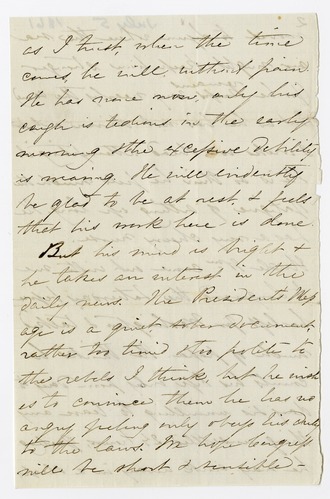 as I trust, when the time
comes, he will without pain.
He has none now, only his
cough is tedious in the early
morning & the excessive debility
is wearing. He will evidently
be glad to be at rest, & feels
that his work here is done.
But his mind is bright &
he takes an interest in the
daily news. The Presidents Mess
age is a quiet sober document,
rather too timid & too polite to
the rebels I think, but he wish
es to convince them he has no
angry feeling only obeys his duty
to the laws. We hope Congress
will be short & sensible -